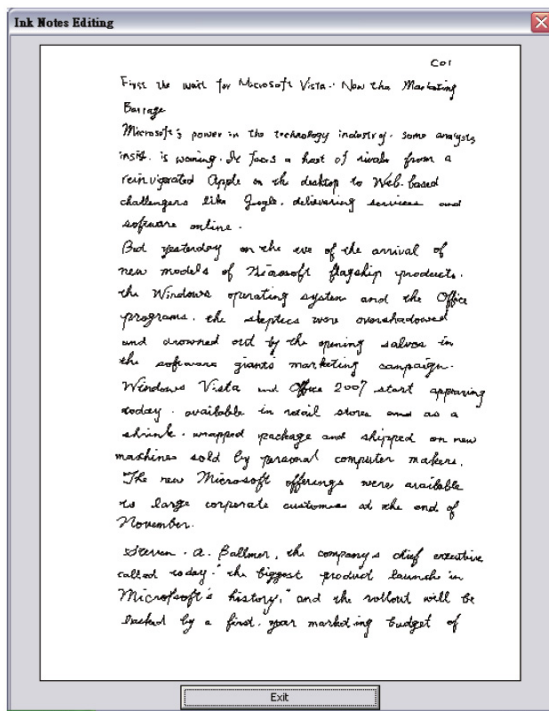 Ink Notes Editing
C01
First the wait for Microsoft Vista. Now the Marketing
Barrage
Microsoft's power in the technology industry. some analysts
insist. is waning. It faces a host of rivals from a
reinvigorated Apple on the desktop to Web-based
challengers like Google. delivering services and
software online.
But yesterday on the eve of the arrival of
new models of Microsoft flagship products.
the Windows operating system and the Office
programs. the skeptics were overshadowed
and drowned out by the opening salvos in
the software giants marketing campaign.
Windows Vista and Office 2007 start appearing
today. available in retail stores and as a
shrink-wrapped package and shipped on new
machines sold by personal computer makers.
The new Microsoft offerings were available
to large corporate customers at the end of
November.
Steven. A. Ballmer, the company,s chief executive
called today. "the biggest product launch in
Microfsoft's history," and the rollout will be
backed by a first. year marketing budget of
Exit